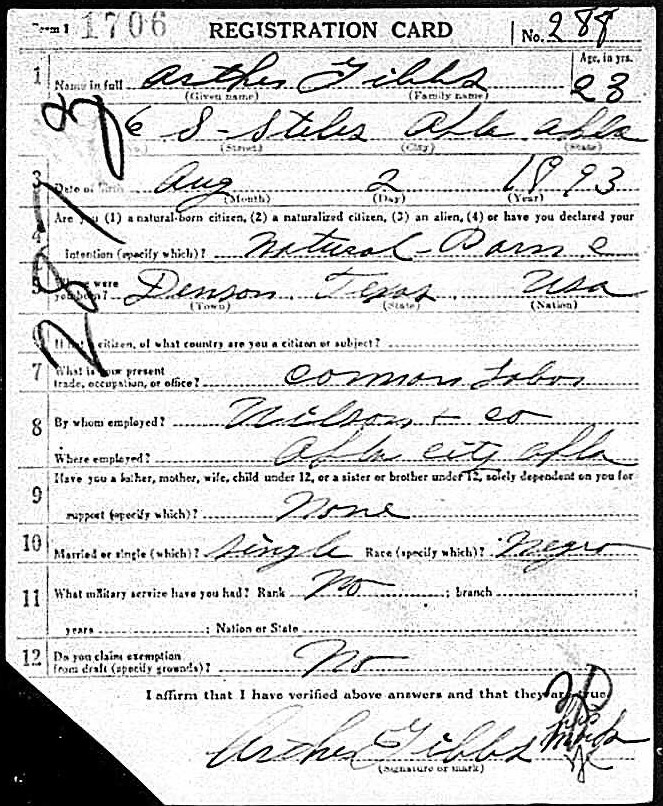 Form 1 1706 REGISTRATION CARD No. 288
1 Name in full Arther Gibbs Age, in yrs. 23
(Given name) (Family name)
6 S-Stiles Okla Okla
(Street) (City) (State)
3 Date of birth Aug 2 1893
(Month) (Day) (Year)
Are you (1) a natural-born citizen, (2) a naturalized citizen, (3) an alien, (4) or have you declared your
4 intention (specify which)? Natural-Born
5 Where were you born? Denson Texas USA
(Town) (State) (Nation)
If not a citizen, of what country are you a citizen or subject?
7 What is your present trade, occupation, or office? common Labor
8 By whom employed? Wilson + co
Where employed? Okla city Okla
9 Have you a father, mother, wife, child under 12, or a sister or brother under 12, solely dependent on you for
support (specify which)? None
10 Married or single (which)? single Race (specify which)? Negro
11 What military service have you had? Rank No ; branch ;
years ; Nation or State
12 Do you claim exemption from draft (specify grounds)? No
I affirm that I have verified above answers and that they are true
Arther Gibbs his mark
(Signature or mark)